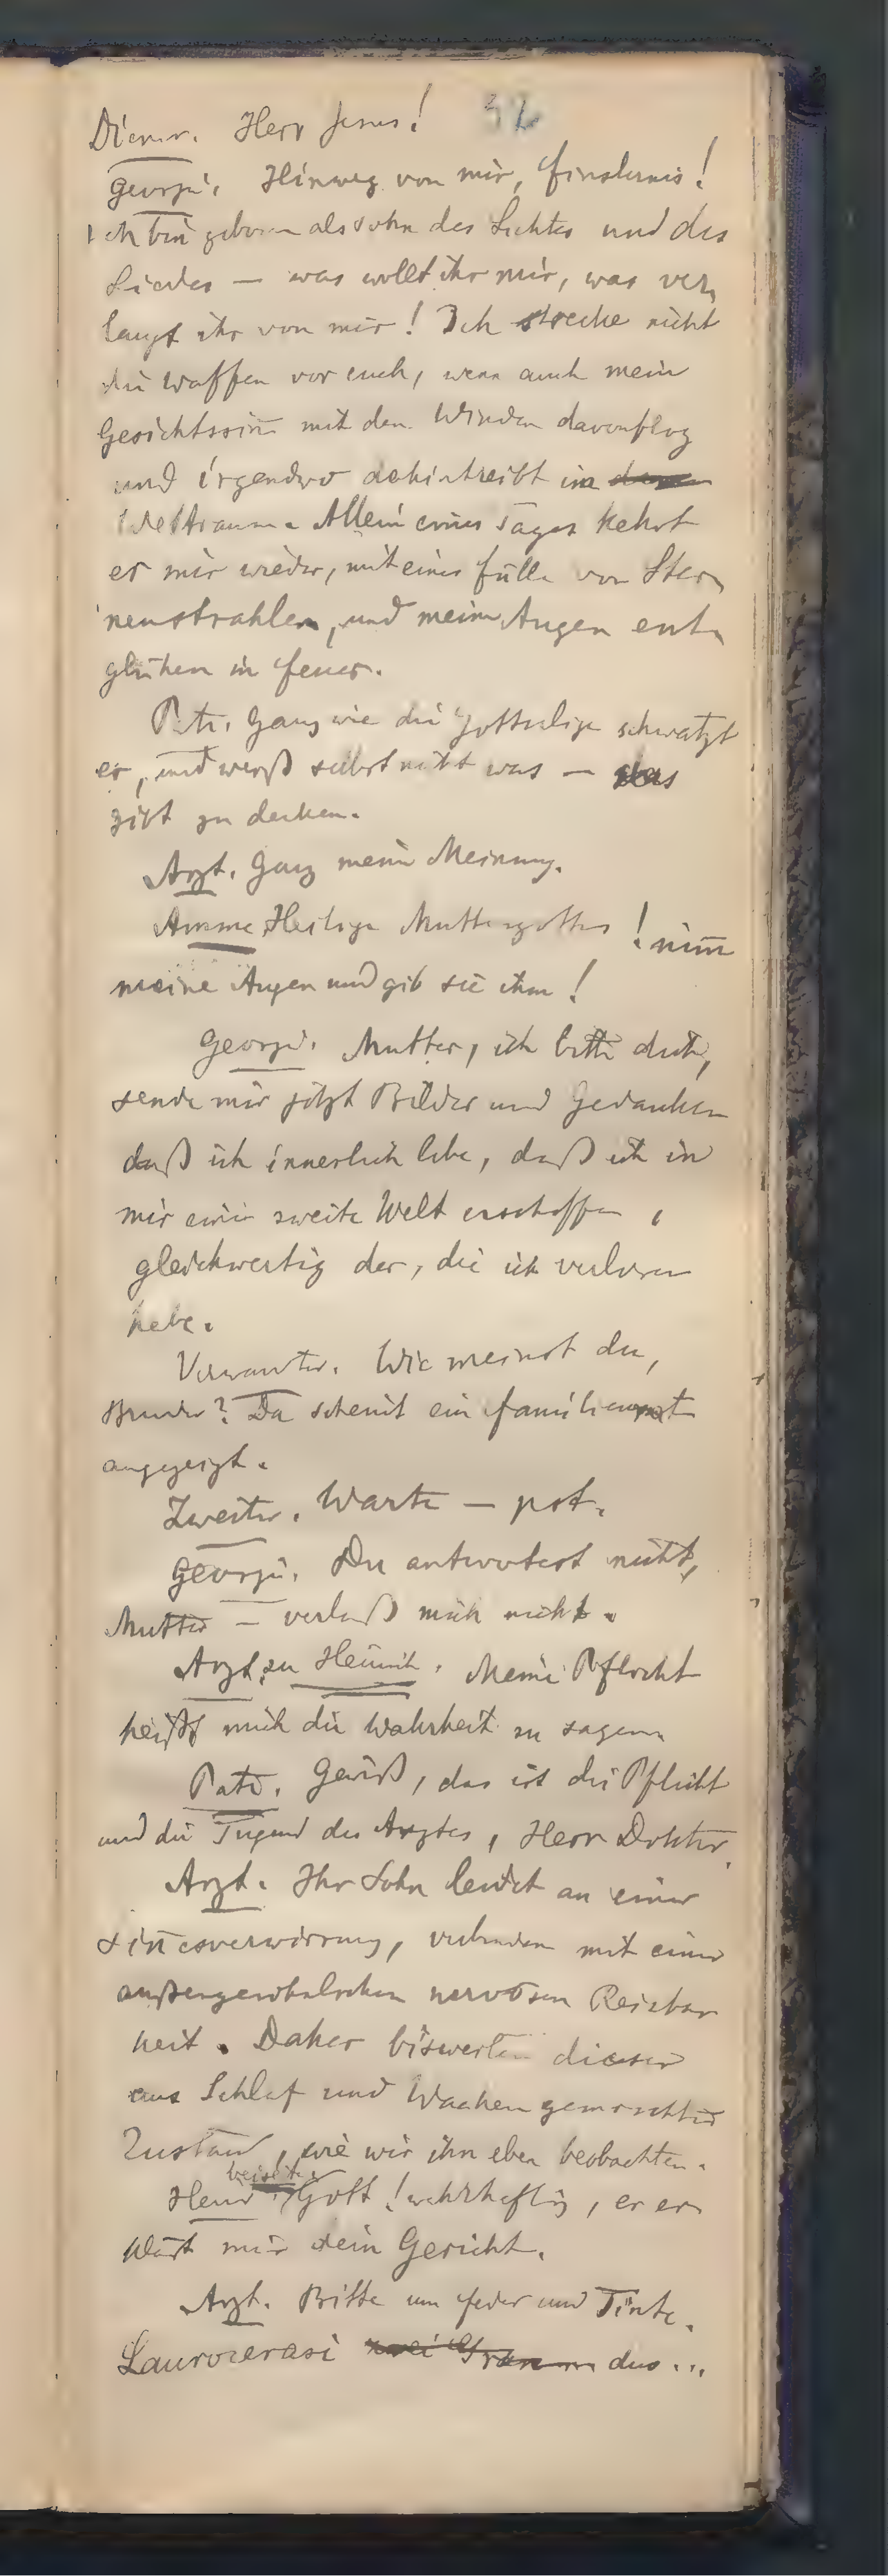 Diener. Herr Jesus! 32
Georgi. Hinweg von mir, Finsternis!
Ich bin geboren als Sohn des Lichtes und des
Liedes — was wollt ihr mir, was ver
langt ihr von mir! Ich strecke nicht
die Waffen vor euch, wenn auch mein
Gesichtssin̄ mit den Winden davonflog
und irgendwo dahintreibt im
Weltraum. Allein eines Tages kehrt
er mir wieder, mit einer Fülle von Ster
nenstrahlen, und meine Augen ent
glühen in Feuer.
Pate. Ganz wie die Gottselige schwatzt
er, und weiß selbst nicht was — das
gibt zu denken.
Arzt. Ganz meine Meinung.
Amme. Heilige Muttergottes! nim̄
meine Augen und gib sie ihm!
Georgi. Mutter, ich bitte dich,
sende mir jetzt Bilder und Gedanken
daß ich innerlich lebe, daß ich in
mir eine zweite Welt erschaffen,
gleichwertig der, die ich verloren
habe.
Verwanter. Wie meinst du,
Bruder? Da scheint ein Familienrat
angezeigt.
Zweiter. Warte — pst.
Georgi. Du antwortest nicht,
Mutter — verlaß mich nicht.
Arzt, zu Heinrich. Meine Pflicht
heißt mich die Wahrheit zu sagen.
Pate. Gewiß, das ist die Pflicht
und die Tugend des Arztes, Herr Doktor.
Arzt. Ihr Sohn leidet an einer
Sin̄esverwirrung, verbunden mit einer
außergewöhnlichen nervösen Reizbar
keit. Daher bisweilen dieser
aus Schlaf und Wachen gemischter
Zustand, wie wir ihn eben beobachten.
Heinr. beiseite. Gott! wahrhaftig, er er
klärt mir sein Gericht.
Arzt. Bitte um Feder und Tinte.
Laurocerasi zwei Gramm duo...